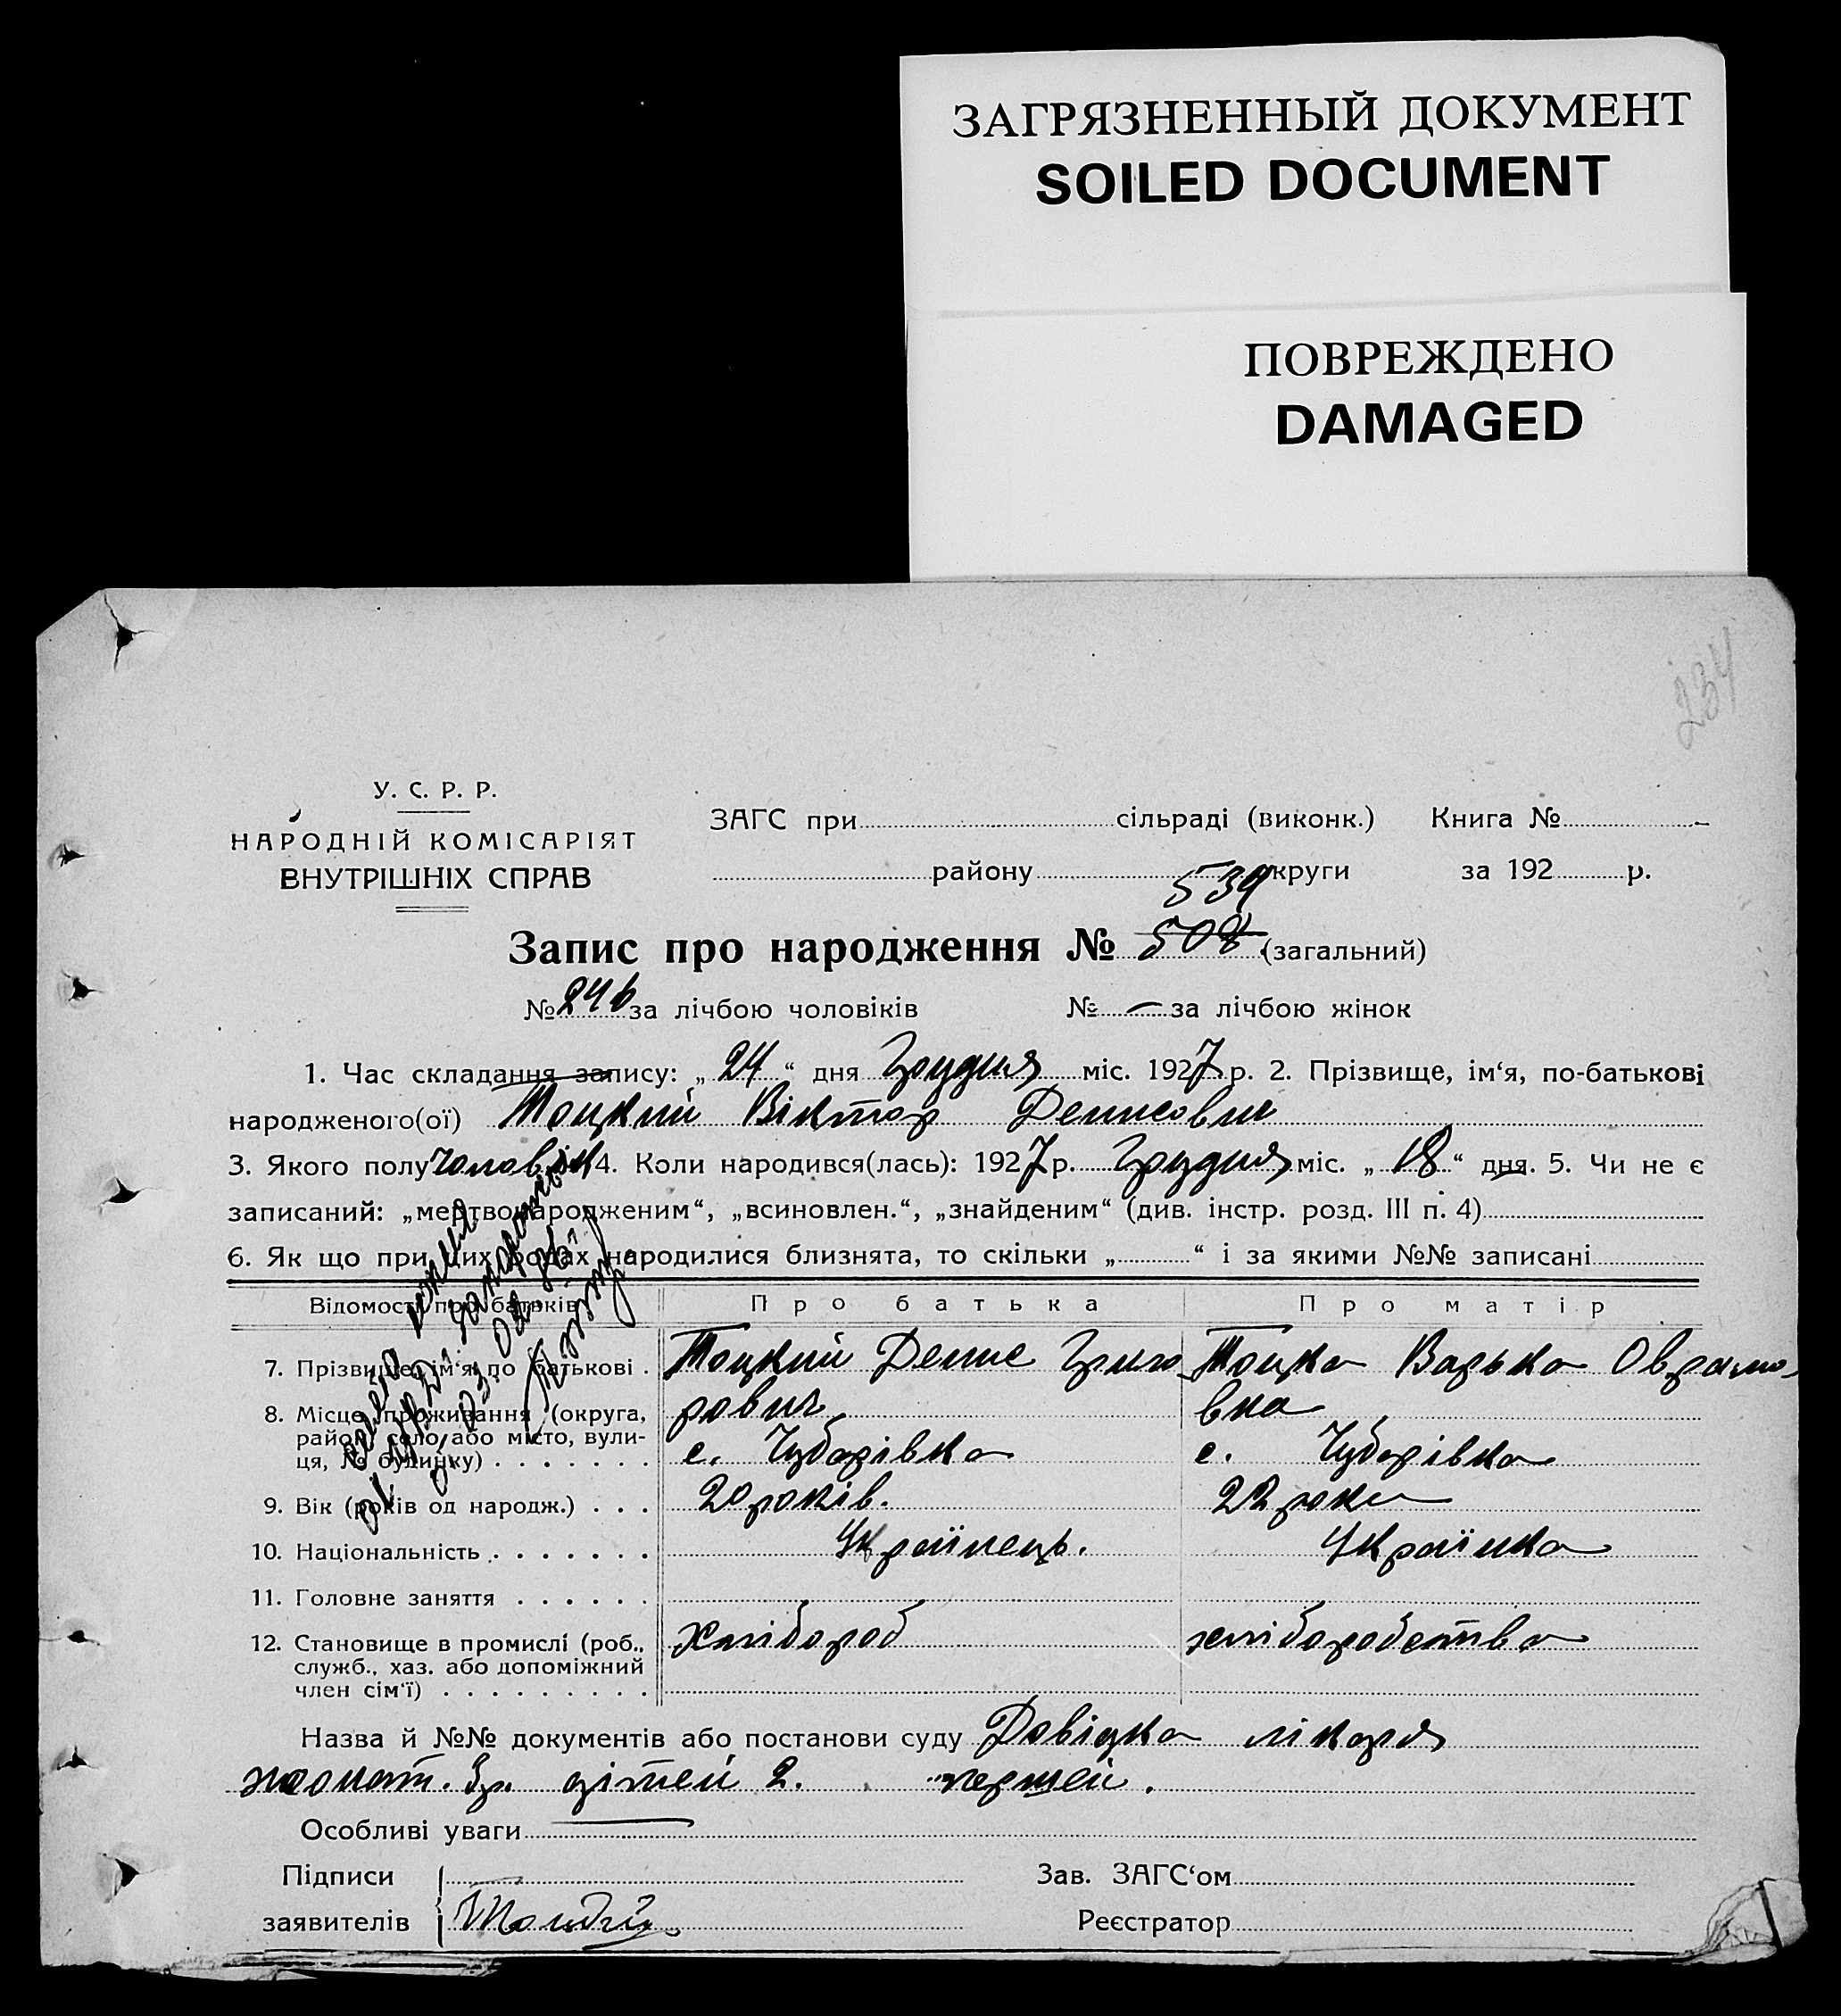 ЗАГРЯЗНЕННЫЙ ДОКУМЕНТ
SOILED DOCUMENT
ПОВРЕЖДЕНО
DAMAGED
234
У. С. Р. Р.
НАРОДНІЙ КОМІСАРІЯТ
ВНУТРІШНІХ СПРАВ
ЗАГС при сільраді (виконк.) Книга №
району округи за 192 р.
539
Запис про народження № 508 (загальний)
№ 246 за лічбою чоловіків № — за лічбою жінок
1. Час складання запису: „ 24 “ дня Грудня міс. 1927 р. 2. Прізвище, ім‘я, по-батькові
народженого(ої) Тоцкий Віктор Денисович
3. Якого полу чоловік 4. Коли народився(лась): 1927 р. Грудня міс. „ 18 “ дня. 5. Чи не є
записаний: „мертвонародженим“, „всиновлен.“, „знайденим“ (див. інстр. розд. III п. 4)
6. Як що при цих родах народилися близнята, то скільки „ “ і за якими №№ записані
Відомості про батьків Про батька Про матір
7. Прізвище, ім‘я, по батькові . Тоцкий Денис Григо- Тоцка Варька Оврамо-
8. Місце проживання (округа, рович вна
район, село або місто, вули-
ця, № будинку) . . . . . . . с. Чубарівка с. Чубарівка
9. Вік (років од народж.) . . . 20 років. 22 роки
10. Національність . . . . . . . Українець. Українка
11. Головне заняття . . . . . .
12. Становище в промислі (роб., хлібороб хліборобства
служб., хаз. або допоміжний
член сім‘ї) . . . . . . . . .
Назва й №№ документів або постанови суду Довідка лікаря
дітей 2. першей.
Особливі уваги
Підписи Зав. ЗАГС‘ом
заявителів Реєстратор